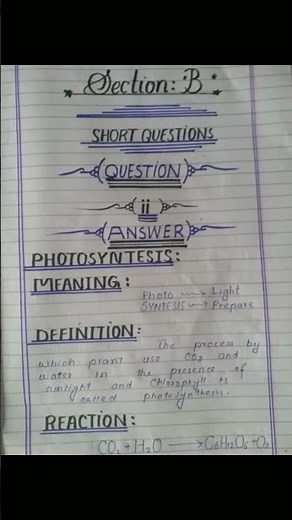 Section: B
SHORT QUESTIONS
QUESTION
ii
ANSWER
PHOTOSYNTESIS:
MEANING:
Photo → Light
SYNTESIS → Prepare
DEFINITION:
The process by
which plant use CO2 and
water in the presence of
sunlight and Chlorophyll is
called photosynthesis.
REACTION:
CO2 + H2O → C6H12O6 + O2